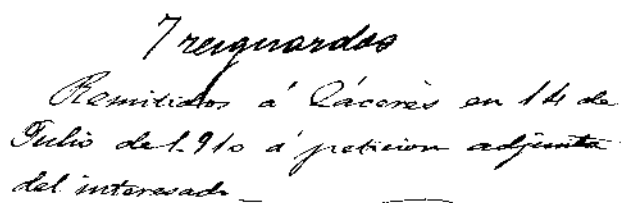 7 resguardos
Remitidos á Cáceres en 14 de
Julio de 1.910 á peticion adjunta
del interesado_